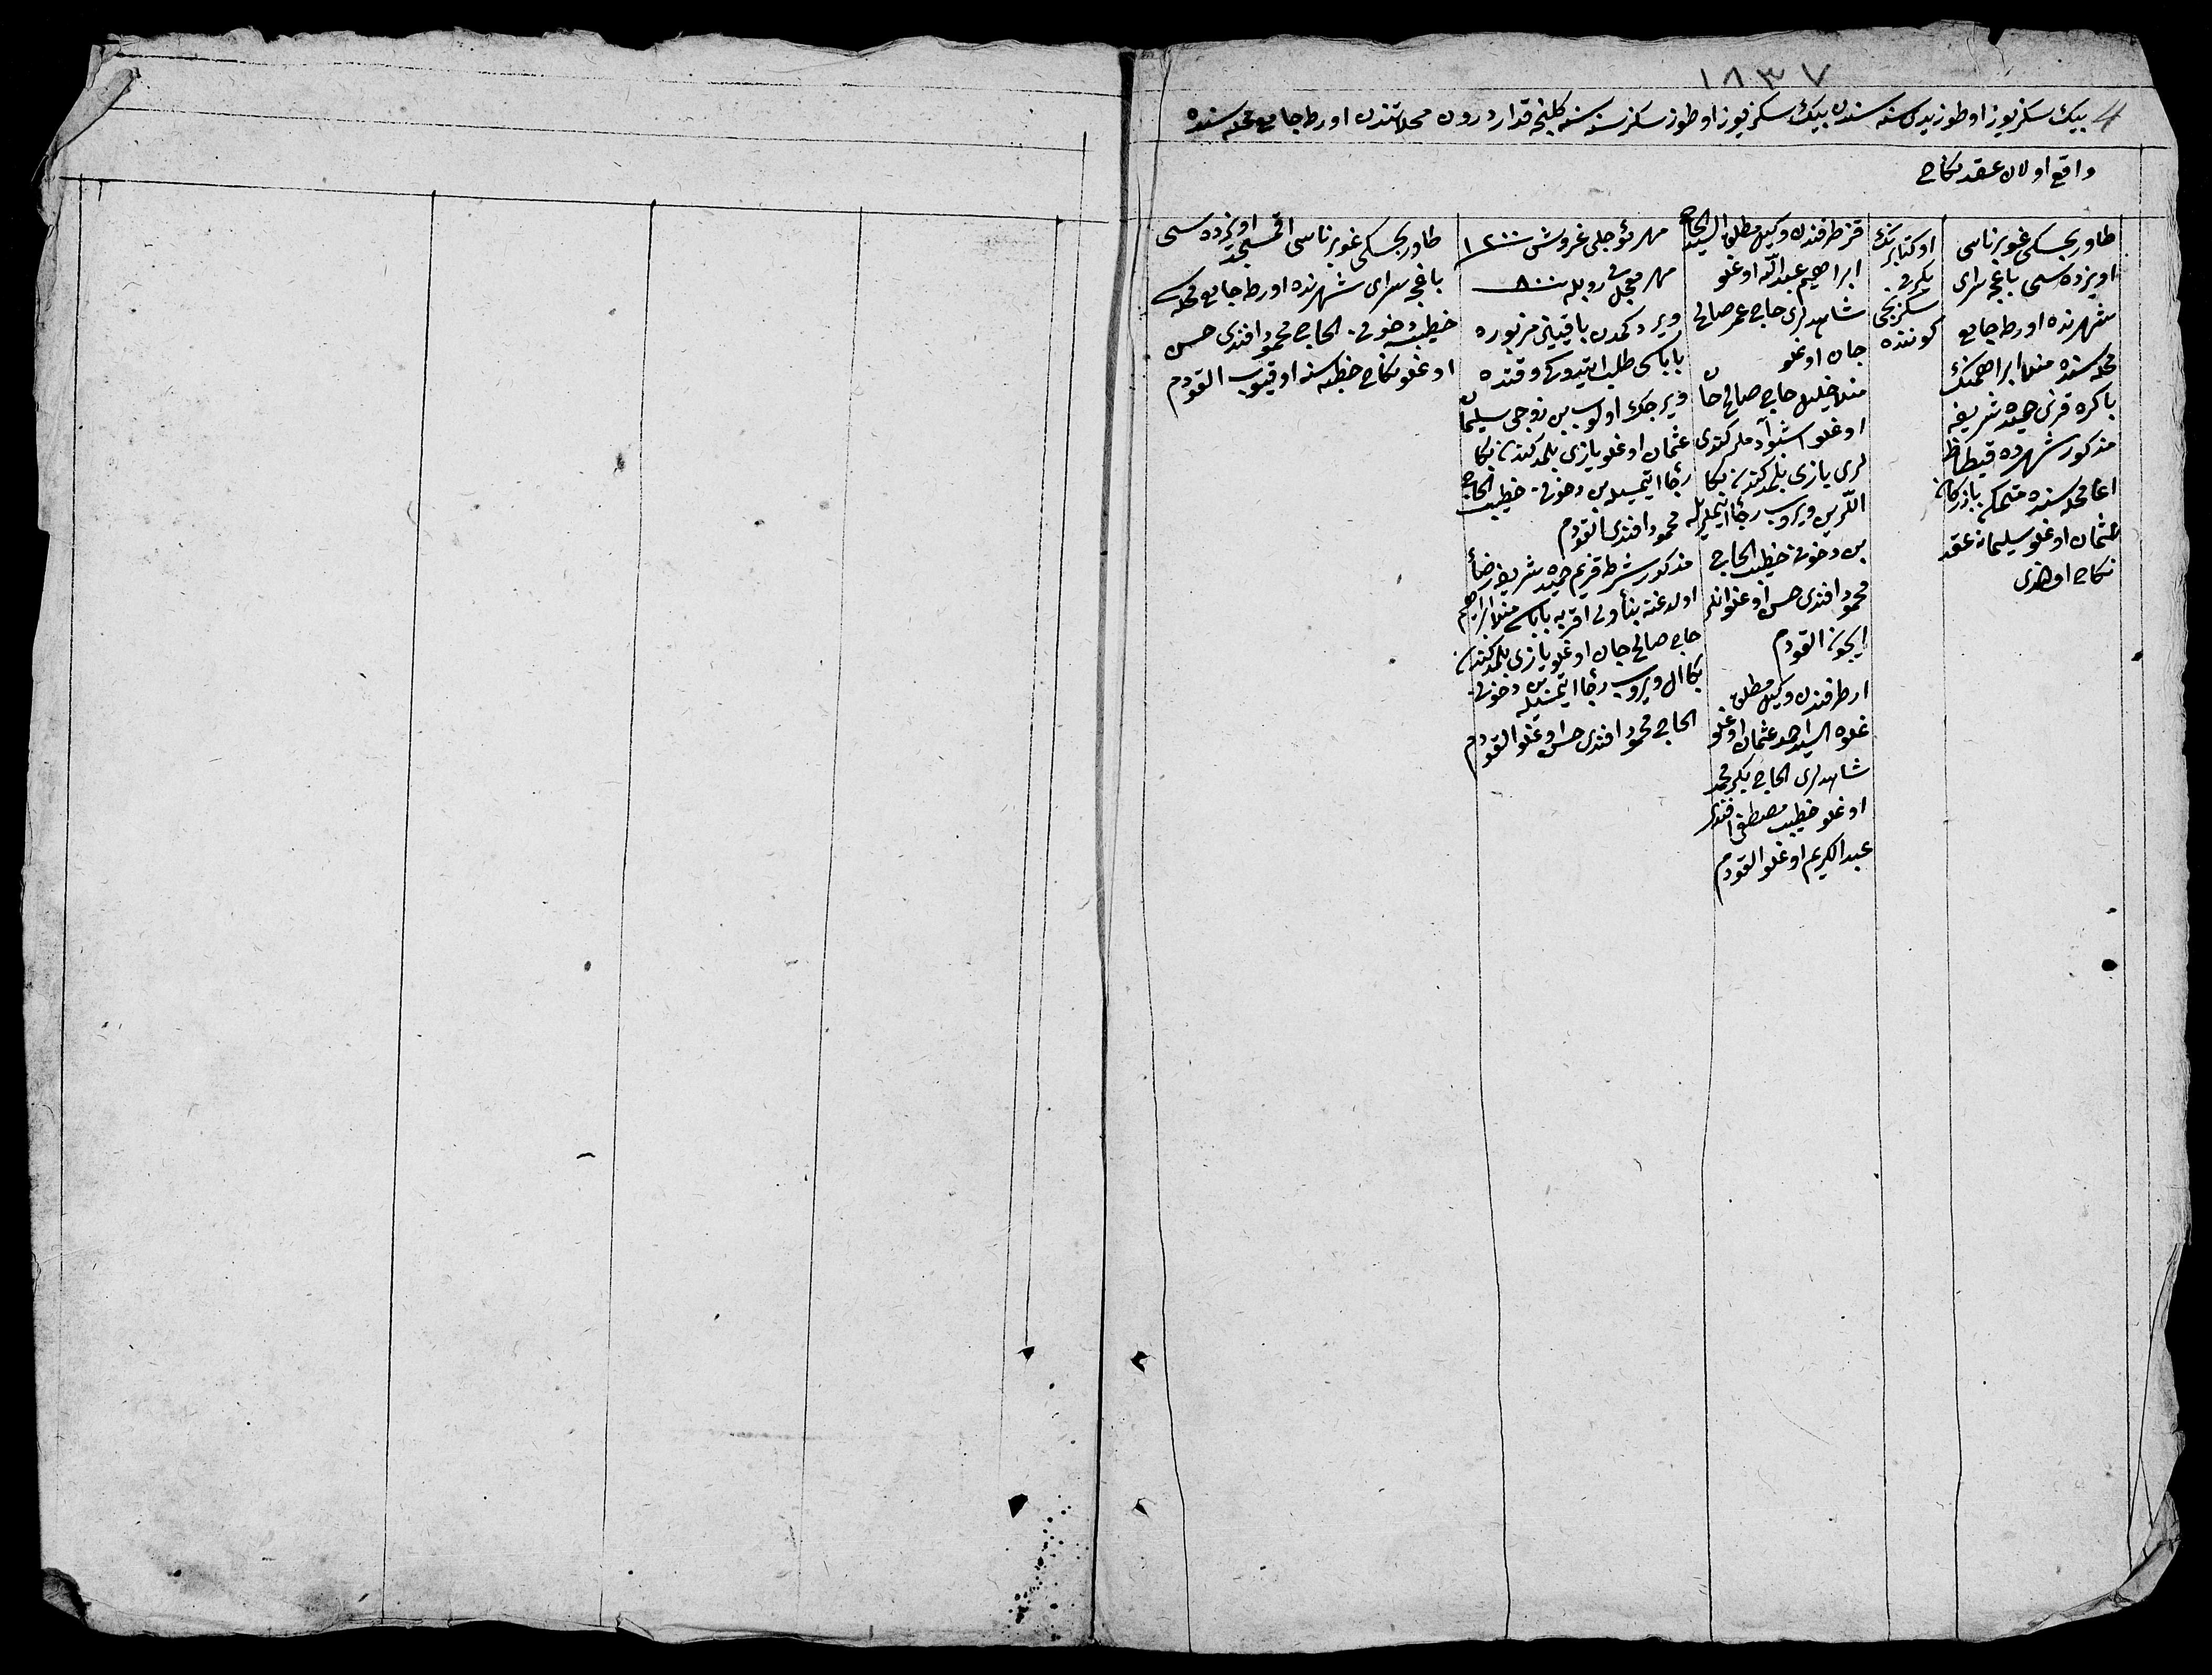 ١٨٣٧
بيك سكز يوز اوطوز يدى سنه سندن بيك سكز يوز اوطوز سكز سنه سنه كلنجه قدار درون محلاتندن اورطه جامع محله سنده
واقع اولان عقد نكاح
طاوريچسكى غوبرناسى
اويزده سى باغچه سراى
شهرنده اورطه جامع
محله سنده منلا ابراهيمنك
باكره قزى حميده شريفه
مذكور شهرده قيطاظ
اغا محله سنده متمكن بازركان
عثمان اوغلو سليمانه عقد
نكاح اولندى
اوكتابرنك
يكرمى
سكزنجى
كوننده
قز طرفندن وكيل مطلق السيد الحاج
ابراهيم عبد الله اوغلو
شاهدلرى حاجى عمر صالح
جان اوغلو
منلا خليل حاجى صالح جان
اوغلو اشبو آدملر كندى
لرى يازى بلمدكندن بكا
اللرين ويروب رجا ايتملريله
بن دخى خطيب الحاج
محمود افندى حسن اوغلو انلر
ايچون القودم
ار طرفندن وكيل مطلق
غلوه السيد احمد عثمان اوغلو
شاهدلرى الحاج بكر محمد
اوغلو خطيب مصطفى افندى
عبد الكريم اوغلو القودم
مهر مؤجلى غروش ١٢٠٠
مهر معجل روبله ٨٠٠
ويردكمدن باقيسنى مزبوره
باباسى طلب ايتديكى وقتده
ويرجك اولوب بن زوجى سليمان
عثمان اوغلو يازى بلمدكندن بكا
رجا ايتمسيله بن دخى خطيب الحاج
محمود افندى القودم
مذكور شرطه قزيم حميده شريفه رضا
اولدغنه بناء ولى اقربه باباسى منلا ابراهيم
حاجى صالح جان اوغلو يازى بلمدكندن
بكا ال ويروب رجا ايتمسيله بن دخى
الحاج محمود افندى حسن اوغلو القودم
طاوريچسكى غوبرناسى اقمسجد اويزده سى
باغچه سراى شهرنده اورطه جامع محله سى
خطيب دخى الحاج محمود افندى حسن
اوغلو نكاح خطبه سنه اوقيوب القودم